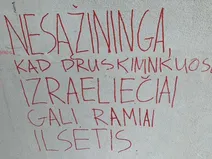 NESĄŽININGA,
KAD DRUSKININKUOSE
IZRAELIEČIAI
GALI RAMIAI
ILSĖTIS.